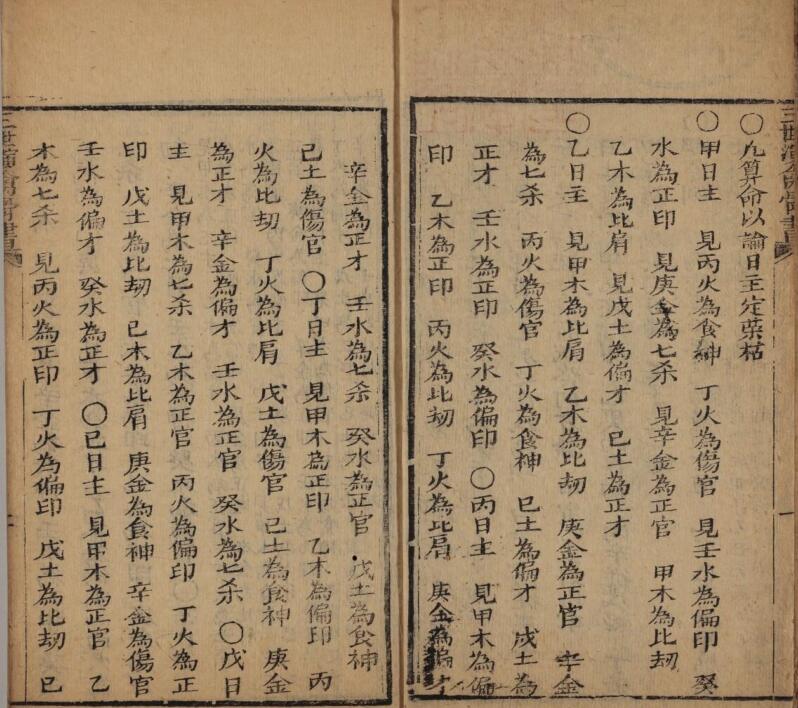 〇凡算命以論日主定荣枯
〇甲日主 見丙火為食神 丁火為傷官 見壬水為偏印 癸
水為正印 見庚金為七杀 見辛金為正官 甲木為比刼
乙木為比肩 見戊土為偏才 己土為正才
〇乙日主 見甲木為比肩 乙木為比刼 庚金為正官 辛金
為七杀 丙火為傷官 丁火為食神 巳土為偏才 戊土為
正才 壬水為正印 癸水為偏印 〇丙日主 見甲木為偏
印 乙木為正印 丙火為比刼 丁火為比肩 庚金為偏才
辛金為正才 壬水為七杀 癸水為正官 戊土為食神
己土為傷官 〇丁日主 見甲木為正印 乙木為偏印 丙
火為比刼 丁火為比肩 戊土為傷官 己土為食神 庚金
為正才 辛金為偏才 壬水為正官 癸水為七杀 〇戊日
主 見甲木為七杀 乙木為正官 丙火為偏印 〇丁火為正
印 戊土為比刼 己木為比肩 庚金為食神 辛金為傷官
壬水為偏才 癸水為正才 〇巳日主 見甲木為正官 乙
木為七杀 見丙火為正印 丁火為偏印 戊土為比刼 巳
三世演禽
一
三世演禽
一